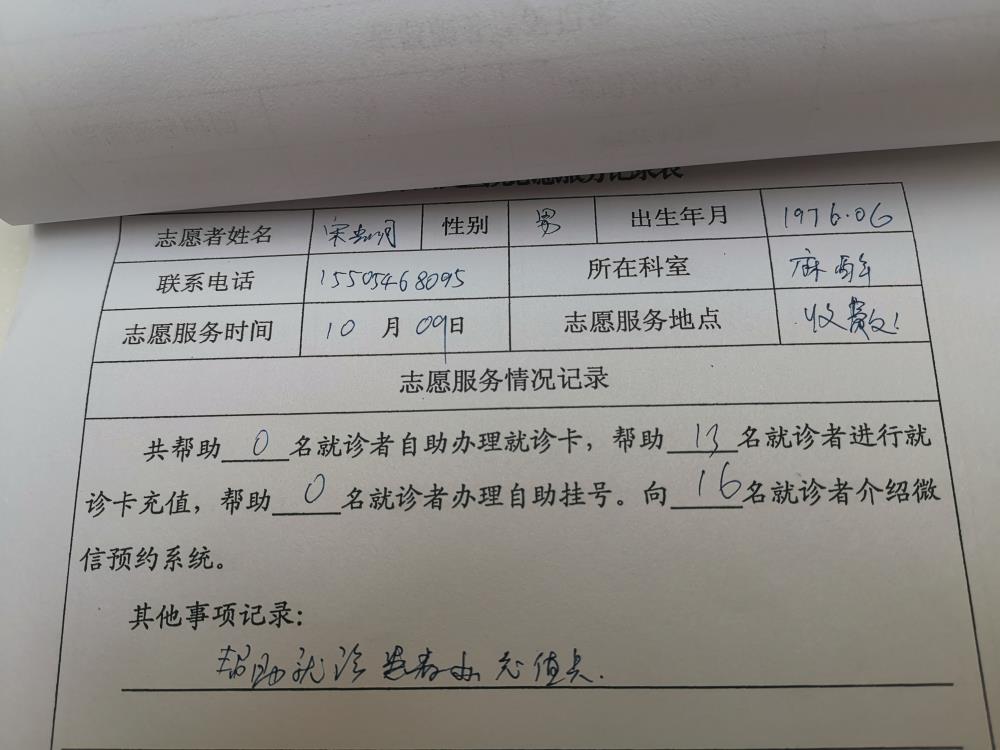 志愿服务记录表
志愿者姓名 宋 性别 男 出生年月 1976.06
联系电话 15505468095 所在科室 麻醉
志愿服务时间 10 月 09 日 志愿服务地点 收费处
志愿服务情况记录
共帮助 0 名就诊者自助办理就诊卡，帮助 13 名就诊者进行就
诊卡充值，帮助 0 名就诊者办理自助挂号。向 16 名就诊者介绍微
信预约系统。
其他事项记录：
帮助就诊患者办充值卡.